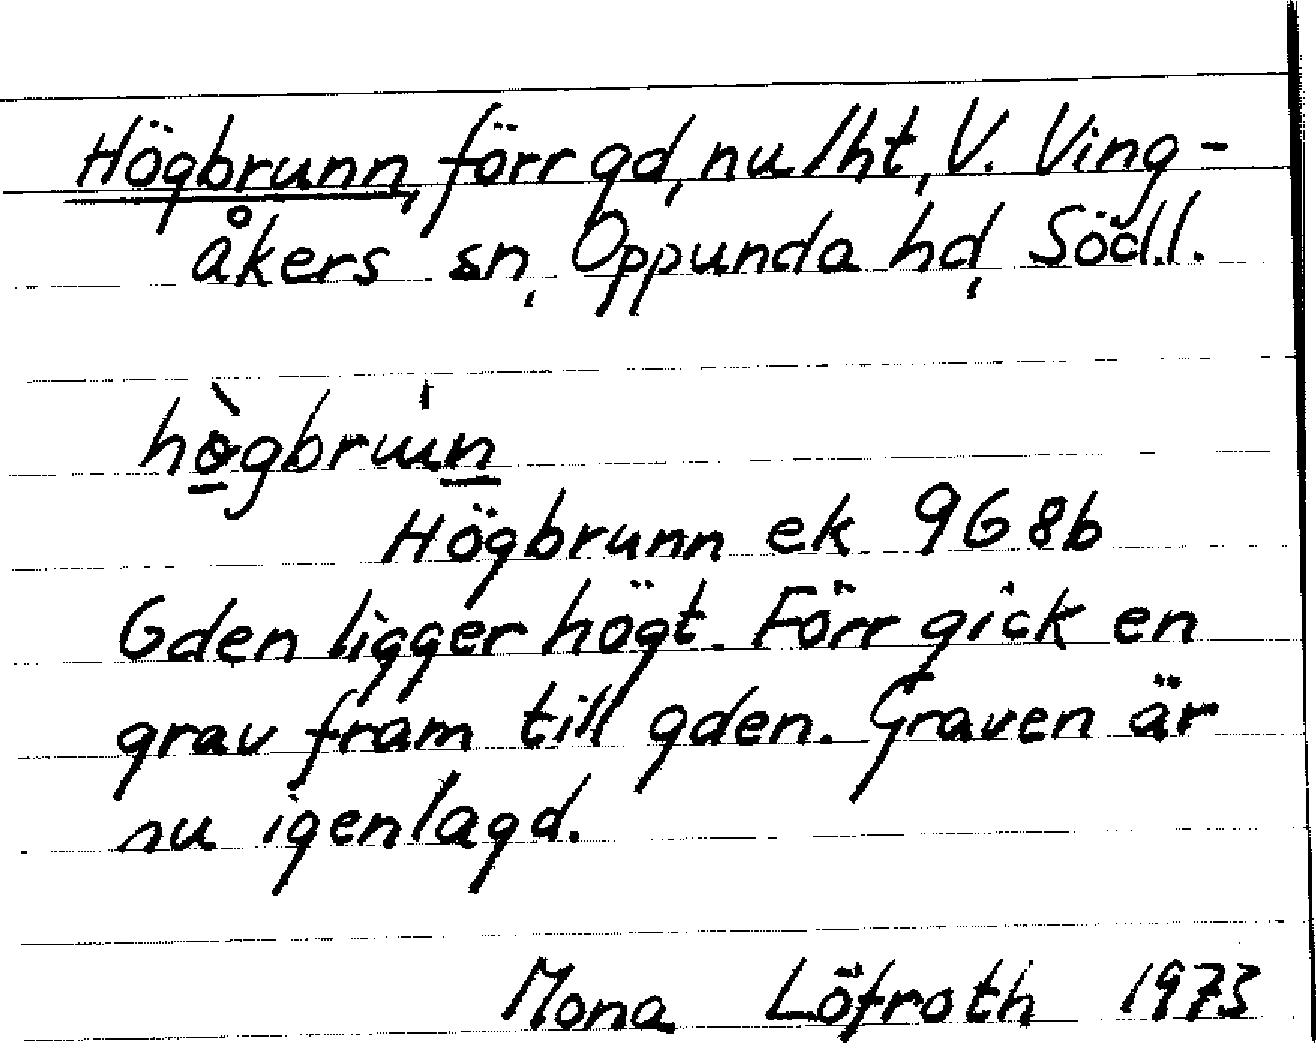 Högbrunn, förr gd, nu lht, V. Ving-
åkers sn, Oppunda hd, Södl.
Högbrunn ek 9G 8b
Gden ligger högt. Förr gick en
grav fram till gden. Graven är
nu igenlagd.
Mona Löfroth 1973